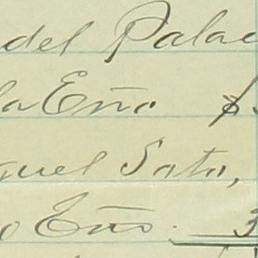 del Palac
la Eño $
guel Soto,
o Eño. 3